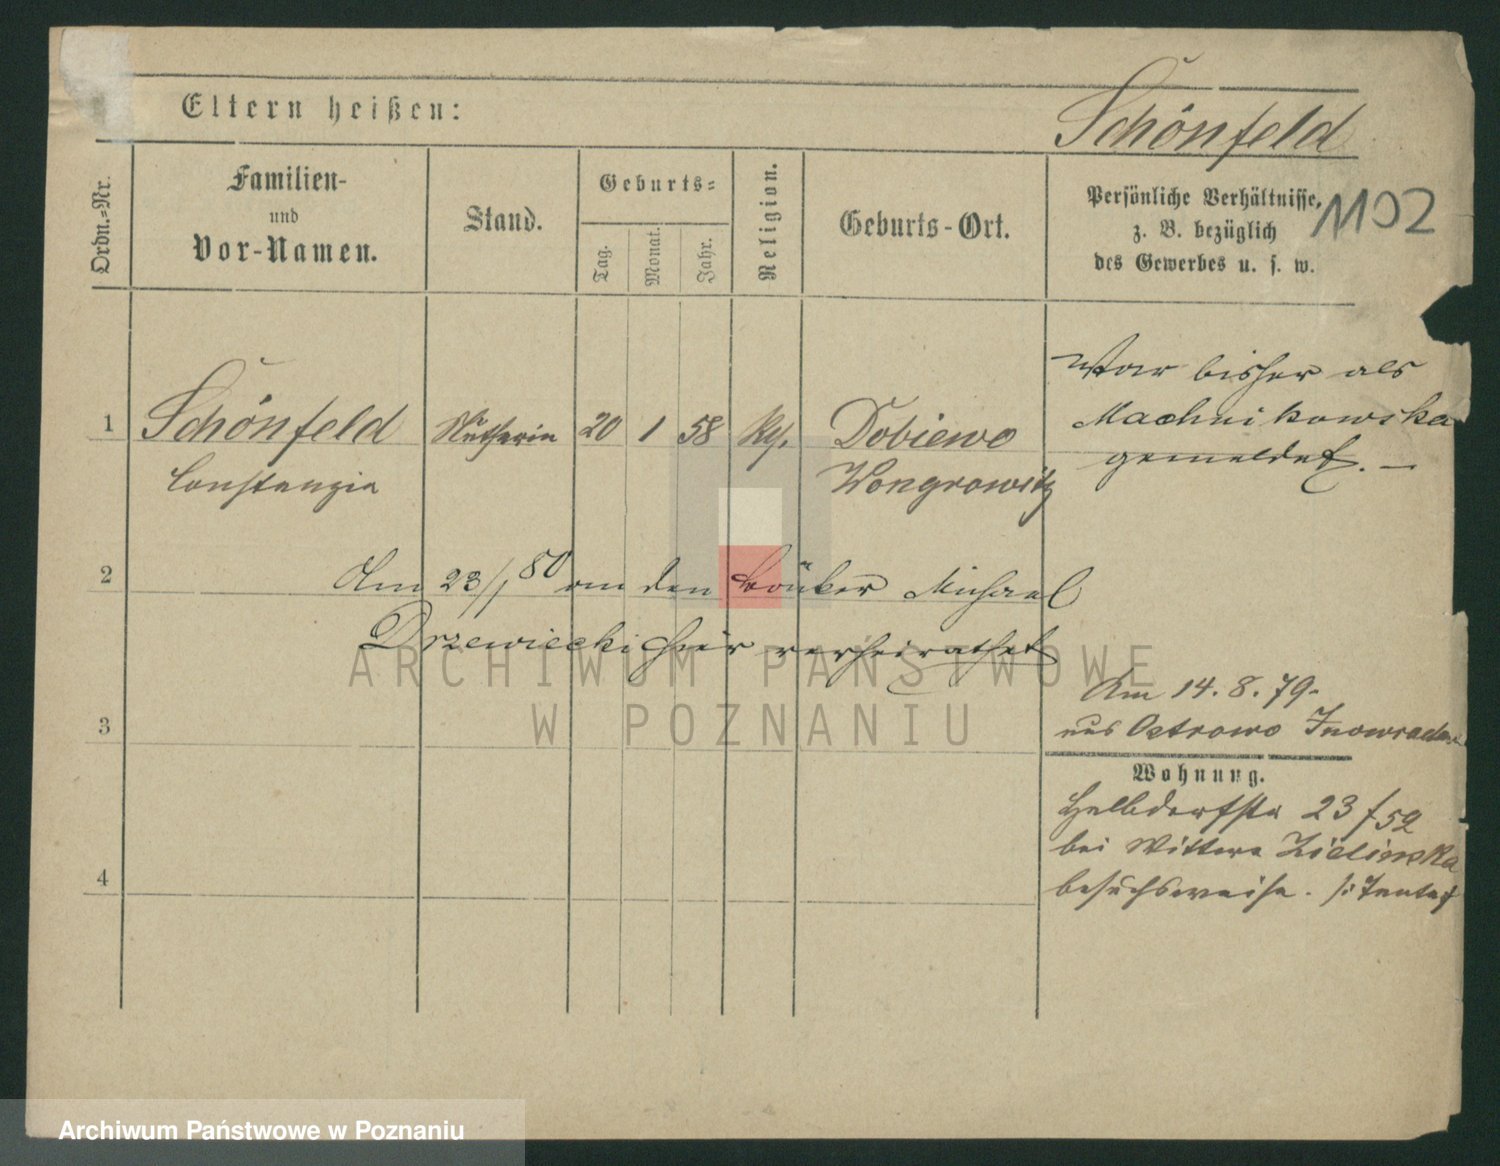 Eltern heißen:
Schönfeld
Ordn.=Nr.
Familien-
und
Vor-Namen.
Stand.
Geburts=
Tag.
Monat.
Jahr.
Religion.
Geburts-Ort.
Persönliche Verhältnisse,
z. B. bezüglich
des Gewerbes u. s. w.
1102
War bisher als
Machnikowska
gemeldet. —
1 Schönfeld 20 1 58 Dobiewo
Constanzia Wongrowitz
2 Am 23/1 80 an den Michael
Drzewiecki hier verheirathet
Am 14. 8. 79.
aus Ostrowo
3
Wohnung.
Halbdorfstr 23
bei Wittwe Zielinska
4
besuchsweise.
ARCHIWUM PAŃSTWOWE
W POZNANIU
Archiwum Państwowe w Poznaniu